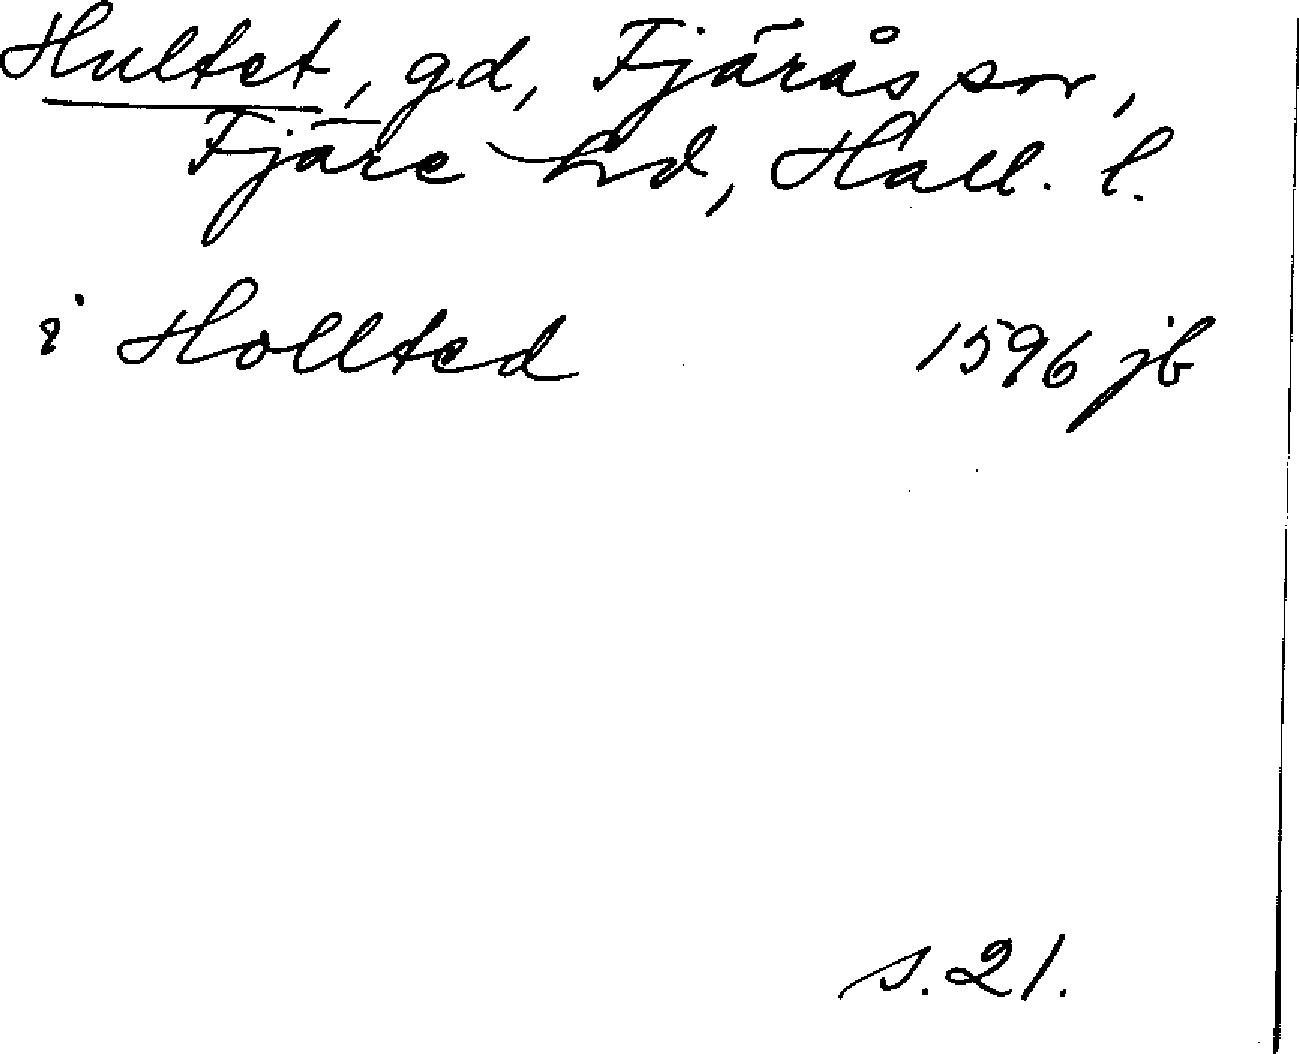 Hultet, gd, Fjärås sn,
Fjäre hd, Hall. l.
i Hollted 1596 jb
s. 21.